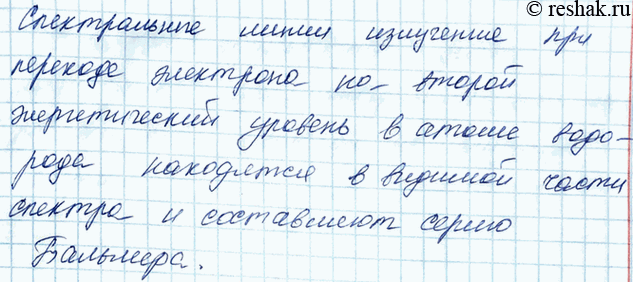 © reshak.ru
Спектральные линии излучение при
переходе электрона на второй
энергетический уровень в атоме водо-
рода находятся в видимой части
спектра и составляют серию
Бальмера.